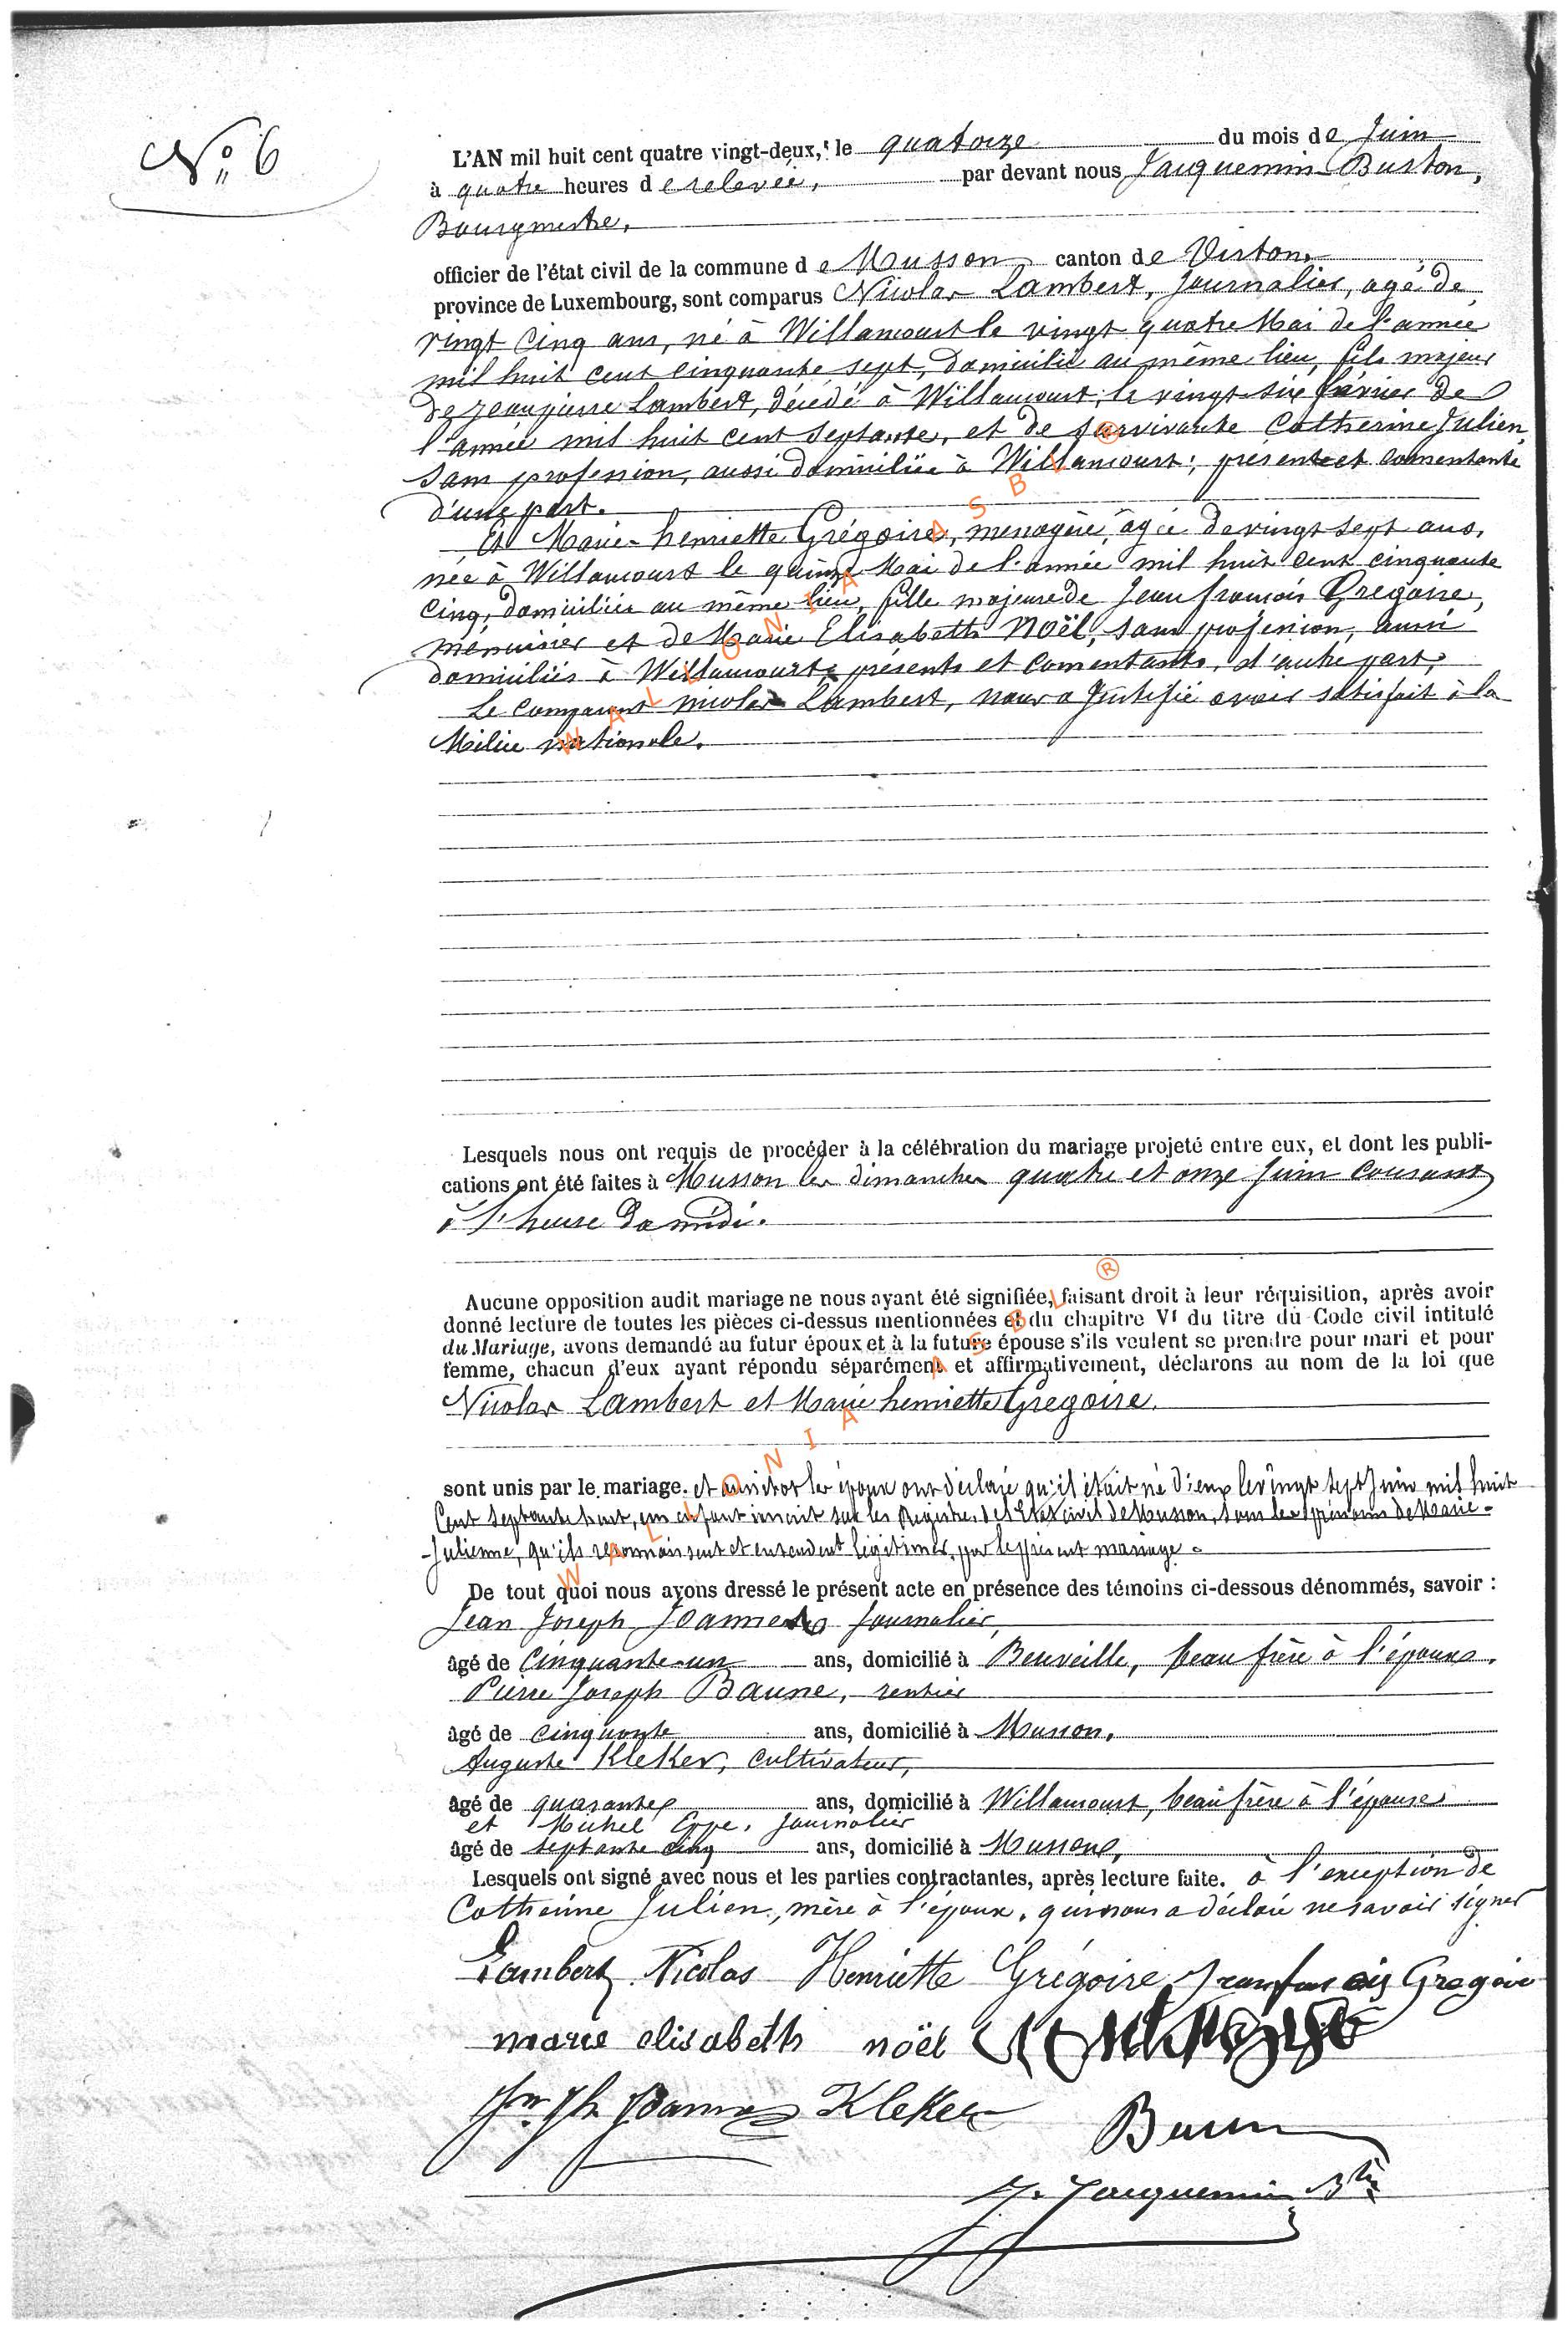 N° 6
L'AN mil huit cent quatre vingt-deux, le quatorze du mois de Juin
à quatre heures de relevée, par devant nous Jacquemin-Buston,
Bourgmestre,
officier de l'état civil de la commune de Musson canton de Virton,
province de Luxembourg, sont comparus Nicolas Lambert, Journalier, agé de
vingt cinq ans, né à Willancourt le vingt quatre Mai de l'année
mil huit cent cinquante sept, domicilié au même lieu, fils majeur
de Jeanpierre Lambert, décédé à Willancourt, le vingt six février de
l'année mil huit cent septante, et de survivante Catherine Julien,
sans profession, aussi domiciliée à Willancourt, présente et consentante
d'une part.
Et Marie-henriette Grégoire, menagère, âgée de vingt sept ans,
née à Willancourt le quinze Mai de l'année mil huit cent cinquante
cinq, domiciliée au même lieu, fille majeure de Jean françois Gregoire,
menuisier et de Marie Elisabeth Noël, sans profession, aussi
domiciliés à Willancourt, présents et consentants, d'autre part,
Le comparant nicolas Lambert, nous a Justifié avoir satisfait à la
Milice nationale.
Lesquels nous ont requis de procéder à la célébration du mariage projeté entre eux, et dont les publi-
cations ont été faites à Musson les dimanches quatre et onze Juin courant
à l'heure de midi.
Aucune opposition audit mariage ne nous ayant été signifiée, faisant droit à leur réquisition, après avoir
donné lecture de toutes les pièces ci-dessus mentionnées et du chapitre VI du titre du Code civil intitulé
du Mariage, avons demandé au futur époux et à la future épouse s'ils veulent se prendre pour mari et pour
femme, chacun d'eux ayant répondu séparément et affirmativement, déclarons au nom de la loi que
Nicolas Lambert et Marie henriette Gregoire.
sont unis par le mariage. et aussitot les époux ont déclaré qu'il était né d'eux le vingt sept Juin mil huit
Cent septante huit, un enfant inscrit sur les Registres de l'Etat civil de Musson, sous les prénoms de Marie-
Julienne, qu'ils reconnaissent et entendent légitimer, par le present mariage.
De tout quoi nous avons dressé le présent acte en présence des témoins ci-dessous dénommés, savoir :
Jean Joseph Journalier,
âgé de cinquante-un ans, domicilié à Beuveille, beau frère à l'épouse.
Pierre Joseph Baune, rentier
âgé de cinquante ans, domicilié à Musson.
Auguste Kleker, cultivateur,
âgé de quarante ans, domicilié à Willancourt, beau frère à l'épouse
et Michel Journalier
âgé de septante cinq ans, domicilié à Musson,
Lesquels ont signé avec nous et les parties contractantes, après lecture faite. à l'exception de
Catherine Julien, mère à l'époux, qui nous a déclaré ne savoir signer
Lambert Nicolas Henriette Grégoire Jean françois Gregoire
marie elisabeth noël
Kleker
J. Jacquemin
WALLONIA ASBL ®
WALLONIA ASBL ®